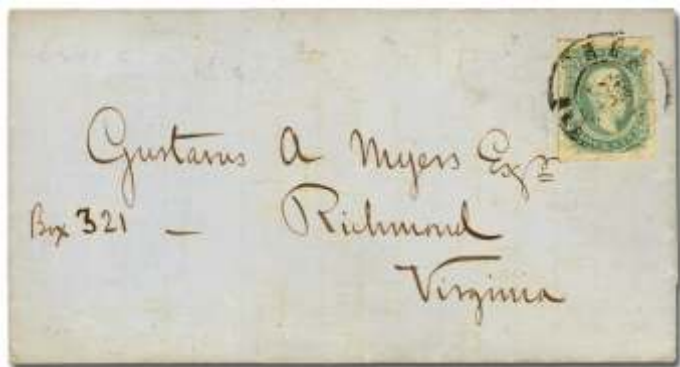 Gustavus A Myers Esqr
Box 321 — Richmond
Virginia